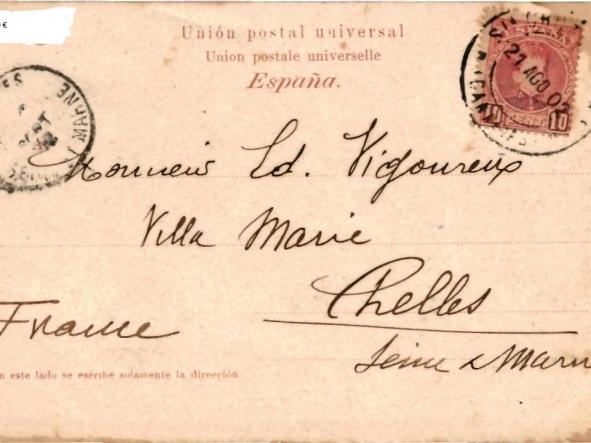 €
Unión postal universal
Union postale universelle
España.
21 AGO 02
10 10
MARNE
Monsieur Ed. Vigoureux
Villa Marie
Chelles
France
Seine & Marn
n este lado se escribe solamente la dirección